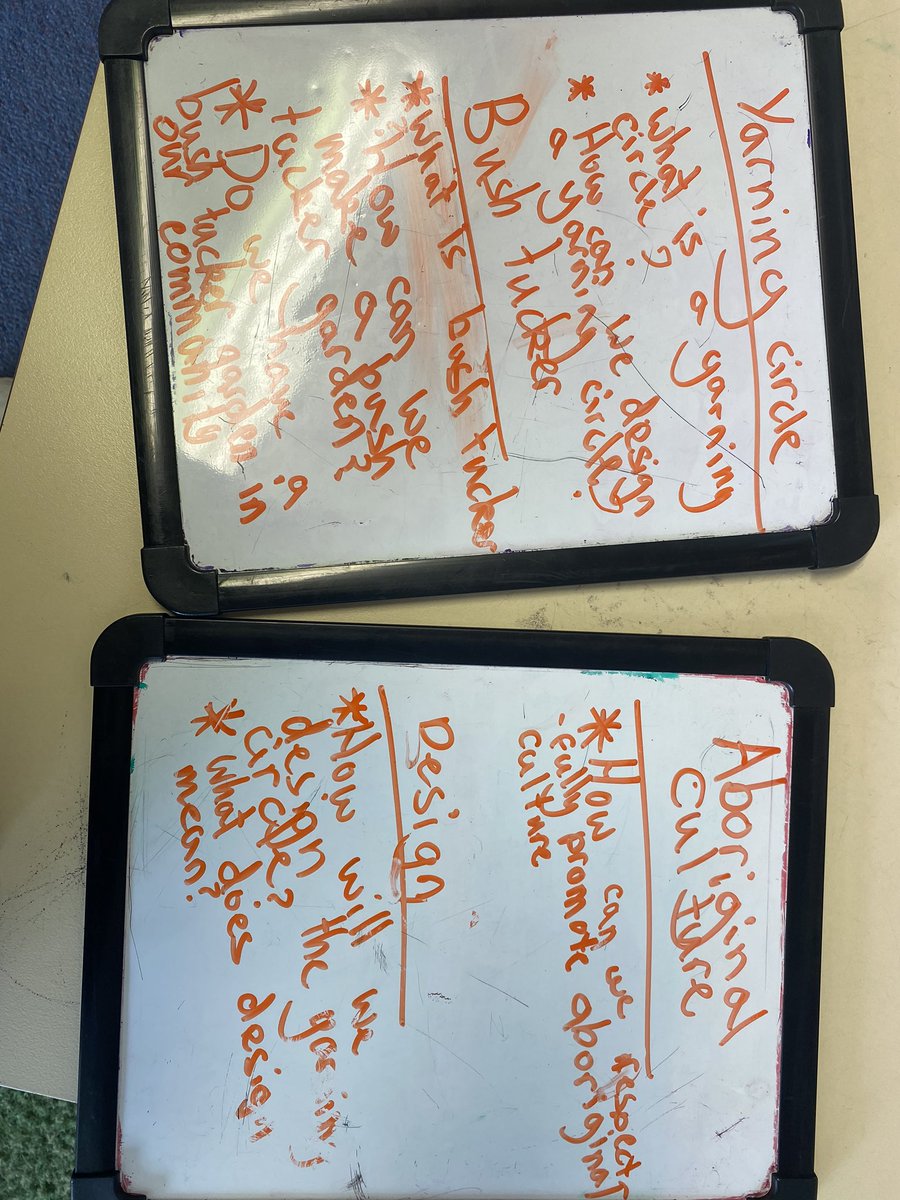 Yarning circle
* what is a yarning
circle?
* How can we design
a yarning circle?
Bush tucker
* What is bush tucker
* How can we
make a bush
tucker garden?
* Do we have a
bush tucker garden in
our community
Aboriginal
culture
* How can we respect
-fully promote aboriginal
culture
Design
* How will we
design the yarning
circle?
* what does design
mean?